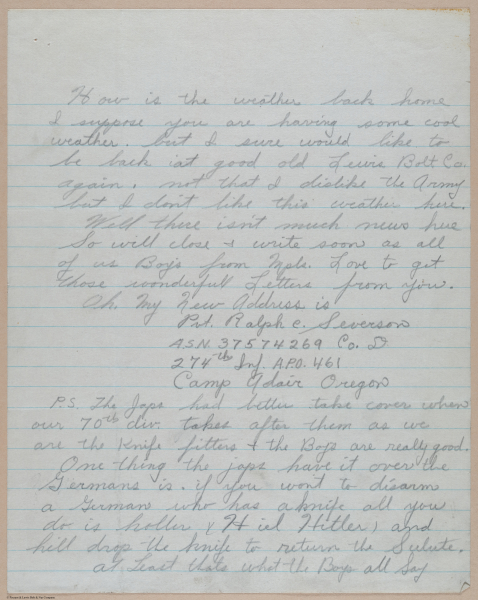 How is the weather back home
I suppose you are having some cool
weather. but I sure would like to
be back at good old Lewis Bolt Co.
again. not that I dislike the Army
but I don't like this weather here.
Well there isn't much news here
So will close & write soon as all
of us Boys from Mpls. Love to get
those wonderfull Letters from you.
Oh. My New Address is
Pvt. Ralph C. Severson
A.S.N. 37574269 Co. D
274th Inf. A.P.O. 461
Camp Adair Oregon
P.S. The Japs had better take cover when
our 70th div. takes after them as we
are the Knife fitters & the Boys are really good.
One thing the japs have it over the
Germans is. if you wont to disarm
a German who has a knife all you
do is holler (Hiel Hitler) and
hell drop the knife to return the Sulute.
at Least thats what the Boys all Say